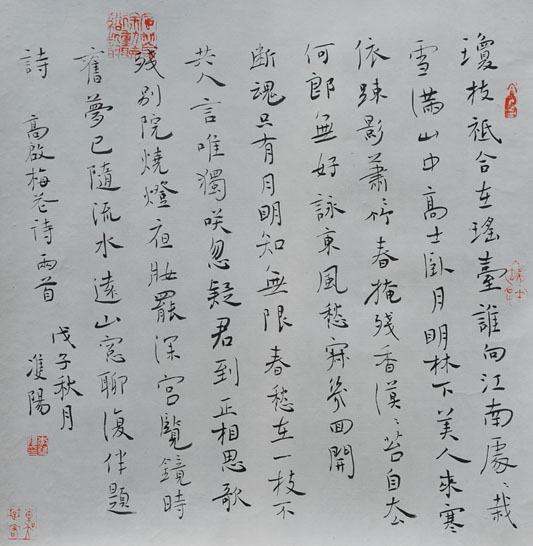 瓊枝祗合在瑤臺誰向江南處〻栽
雪滿山中高士臥月明林下美人來寒
依踈影蕭〻竹春掩殘香漠〻苔自去
何郎無好詠東風愁寂幾回開
断魂只有月明知無限春愁在一枝不
共人言唯獨咲忽疑君到正相思歌
殘別院燒燈夜妝罷深宮覽鏡時
舊夢已隨流水遠山窓聊復伴題
詩 高啟梅花詩兩首
戊子秋月
陽